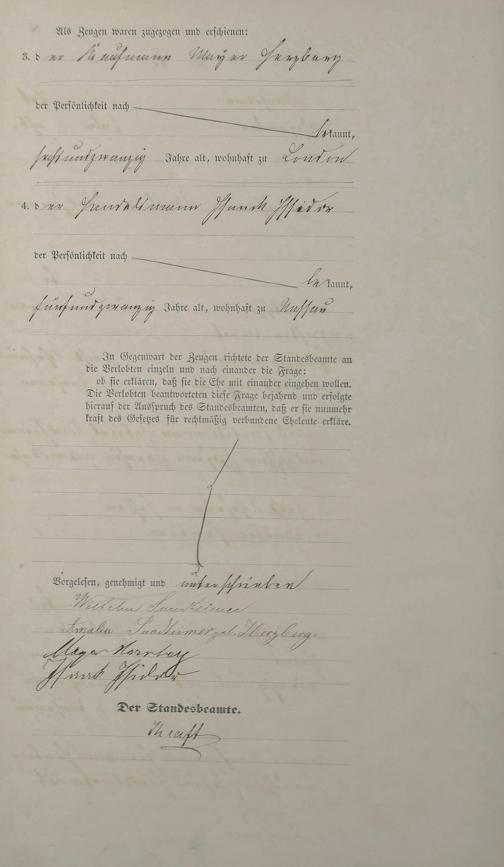 Als Zeugen waren zugezogen und erschienen:
3. der Kaufmann Mayer Herzberg
der Persönlichkeit nach
bekannt,
sechsundzwanzig Jahre alt, wohnhaft zu London
4. der Handelsmann Isidor
der Persönlichkeit nach
bekannt,
fünfundzwanzig Jahre alt, wohnhaft zu Nassau
In Gegenwart der Zeugen richtete der Standesbeamte an
die Verlobten einzeln und nach einander die Frage:
ob sie erklären, daß sie die Ehe mit einander eingehen wollen.
Die Verlobten beantworteten diese Frage bejahend und erfolgte
hierauf der Ausspruch des Standesbeamten, daß er sie nunmehr
kraft des Gesetzes für rechtmäßig verbundene Eheleute erkläre.
Vorgelesen, genehmigt und unterschrieben
Wilhelm
Amalie geb. Herzberg.
Mayer Herzberg
Isidor
Der Standesbeamte.